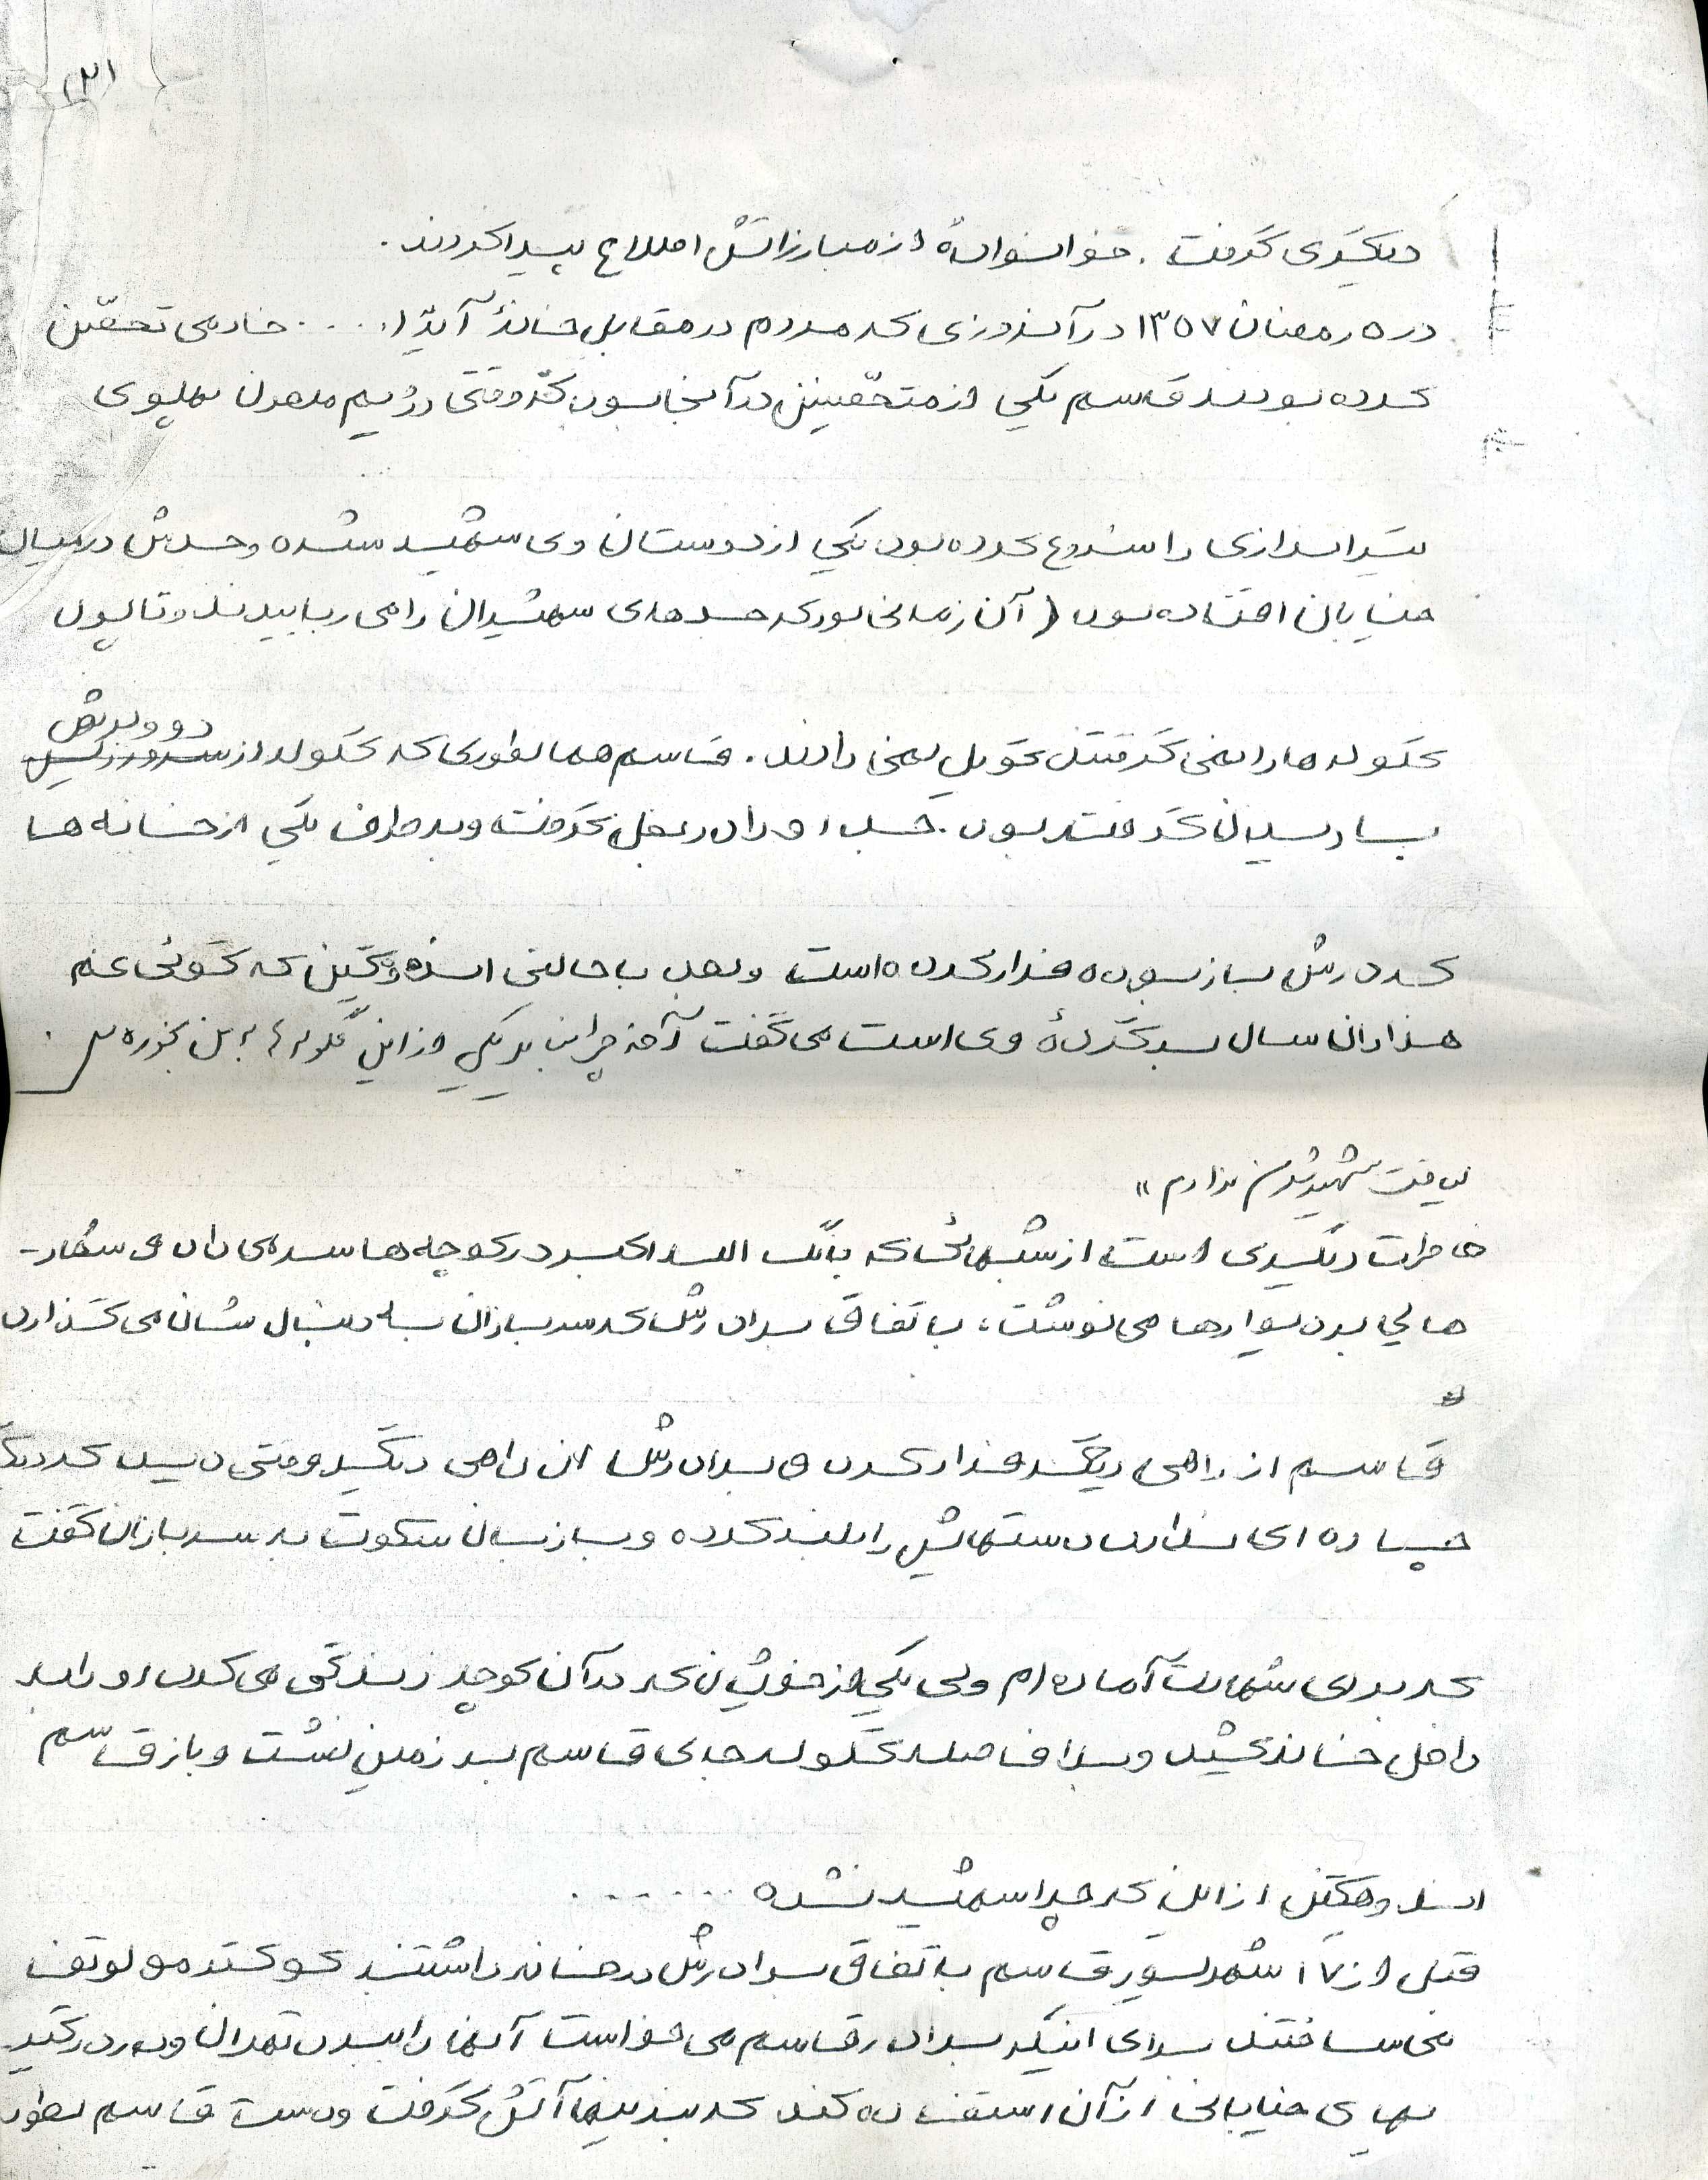 (۳)
دیگری گرفت . خوانوادهٔ از مبارزاتش اطلاع پیدا کردند .
در ۵ رمضان ۱۳۵۷ در آنروزی که مردم در مقابل خانهٔ آیة ا.... خادمی تحصّن
کرده بودند قاسم یکی از متحصّنین در آنجا بود که وقتی رژیم ملعون پهلوی
تیراندازی را شروع کرده بود یکی از دوستان وی شهید شده و جسدش در میان
خیابان افتاده بود ( آن زمانی بود که جسدهای شهیدان را می ربابیدند و تا پول
دو ورش
گلوله ها را نمی گرفتند تحویل نمی دادند . قاسم همانطوری که گلوله از
باریدن گرفته بود . جسد او را در بغل گرفت و به طرف یکی از خانه ها
که درش باز بوده فرار کرده است و بعد با حالتی اندوهگین که گوئی غم
هزاران سال بر گردهٔ وی است می گفت آخر چرا نباید یکی از این گلوله ها به من بخوره من
لیاقت شهید شدن ندارم »
خاطرات دیگری است از شبهائی که بانگ الله اکبر در کوچه ها سر می داد و شعار-
هایی بر دیوارها می نوشت ، باتفاق برادرش که سربازان به دنبال شان می گذارد
قاسم از راهی دیگر فرار کرد و برادرش از راهی دیگر وقتی دید که دیگر
چاره ای ندارد دستهایش را بلند کرده و با زبان سکوت به سربازان گفت
که برای شهادت آماده ام ولی یکی از خویشان که در آن کوچه زندگی می کرد او را به
داخل خانه کشید و بلافاصله گلوله جای قاسم بر زمین نشست و باز قاسم
اندوهگین از این که چرا شهید نشده .......
قبل از ۱۷ شهریور قاسم باتفاق برادرش در خانه داشتند کوکتل مولوتف
می ساختند برای اینکه برادر قاسم می خواست آنها را ببرد تهران و در درگیر
یهای خیابانی از آن استفاده کند که بنزینها آتش گرفت و دست قاسم بطور